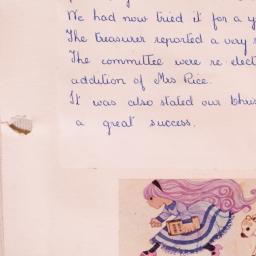 We had now tried it for a y
The treasurer reported a very
The committee were re elect
addition of Mrs Rice.
It was also stated our
a great success.